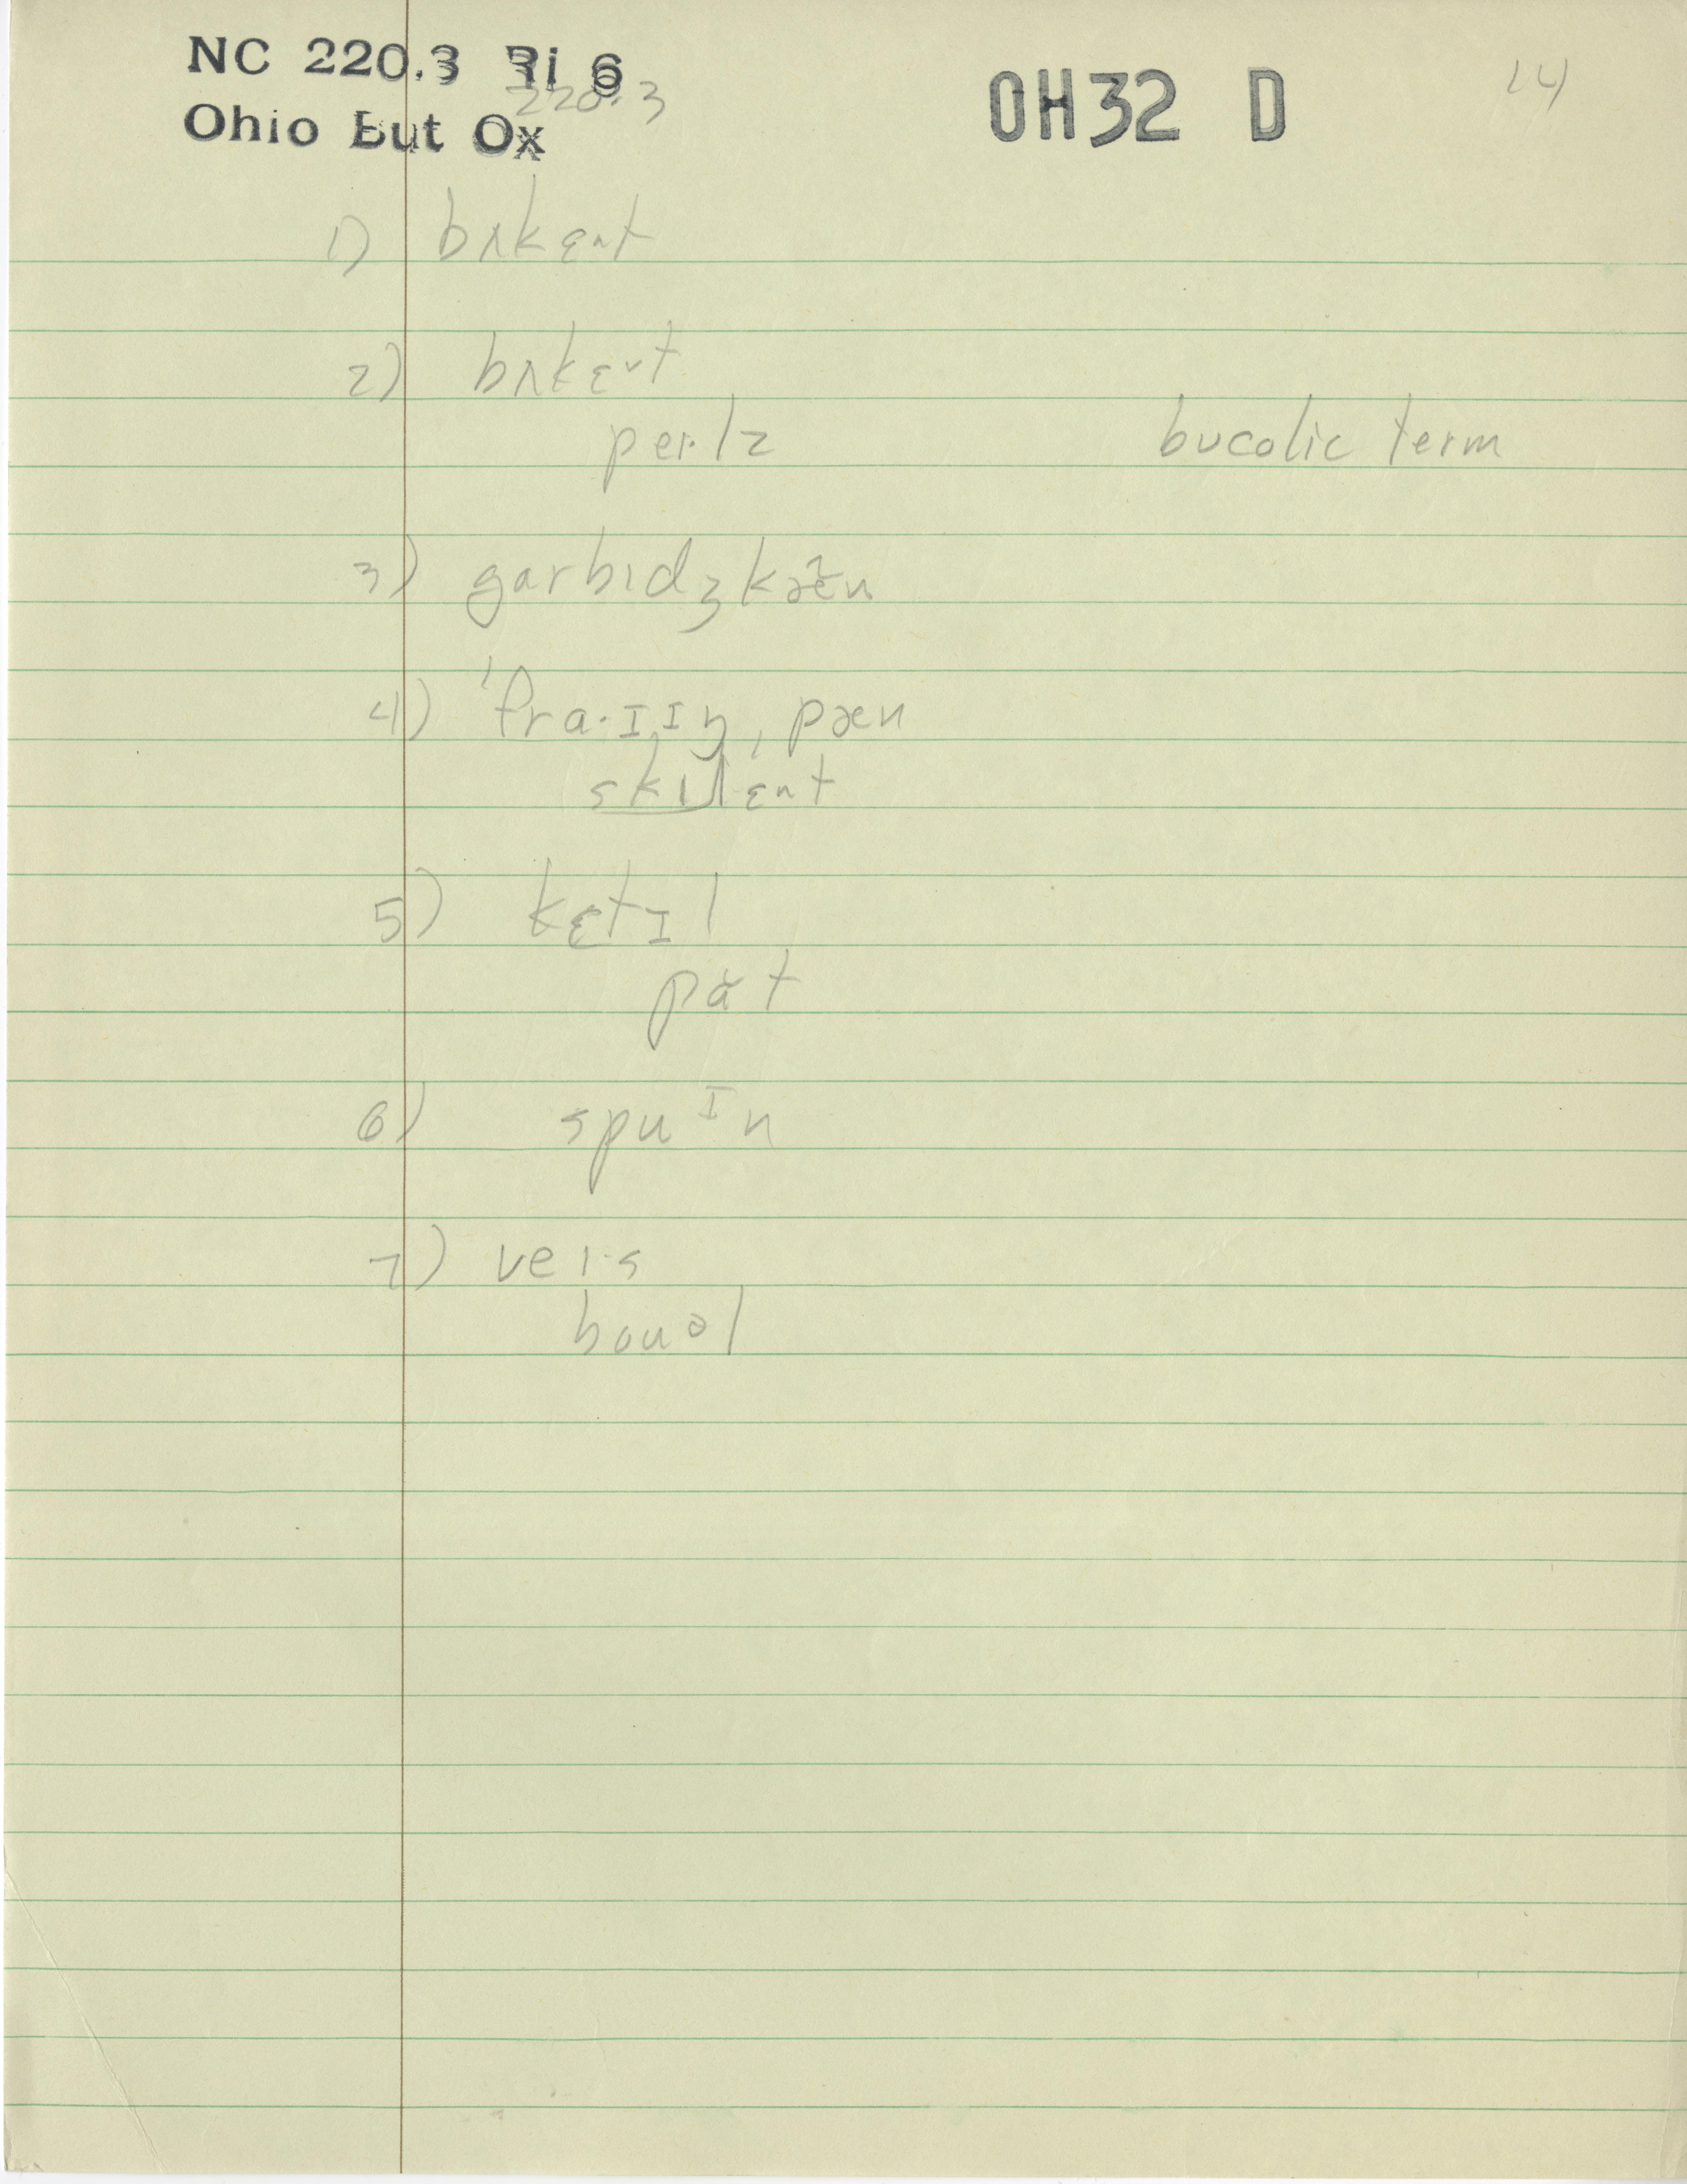 NC 220.3 3i 6
220.3
Ohio But Ox
OH32 D
14
1) bʌkɛ^t
2) bʌkɛˇt
perlz bucolic term
3) garbɪdʒkæ̆n
4) ˈfra·ɪɪŋˌpæn
skɪlɛ^t
5) kɛtɪl
păt
6) spuᴵn
7) veɪ·s
bouəl